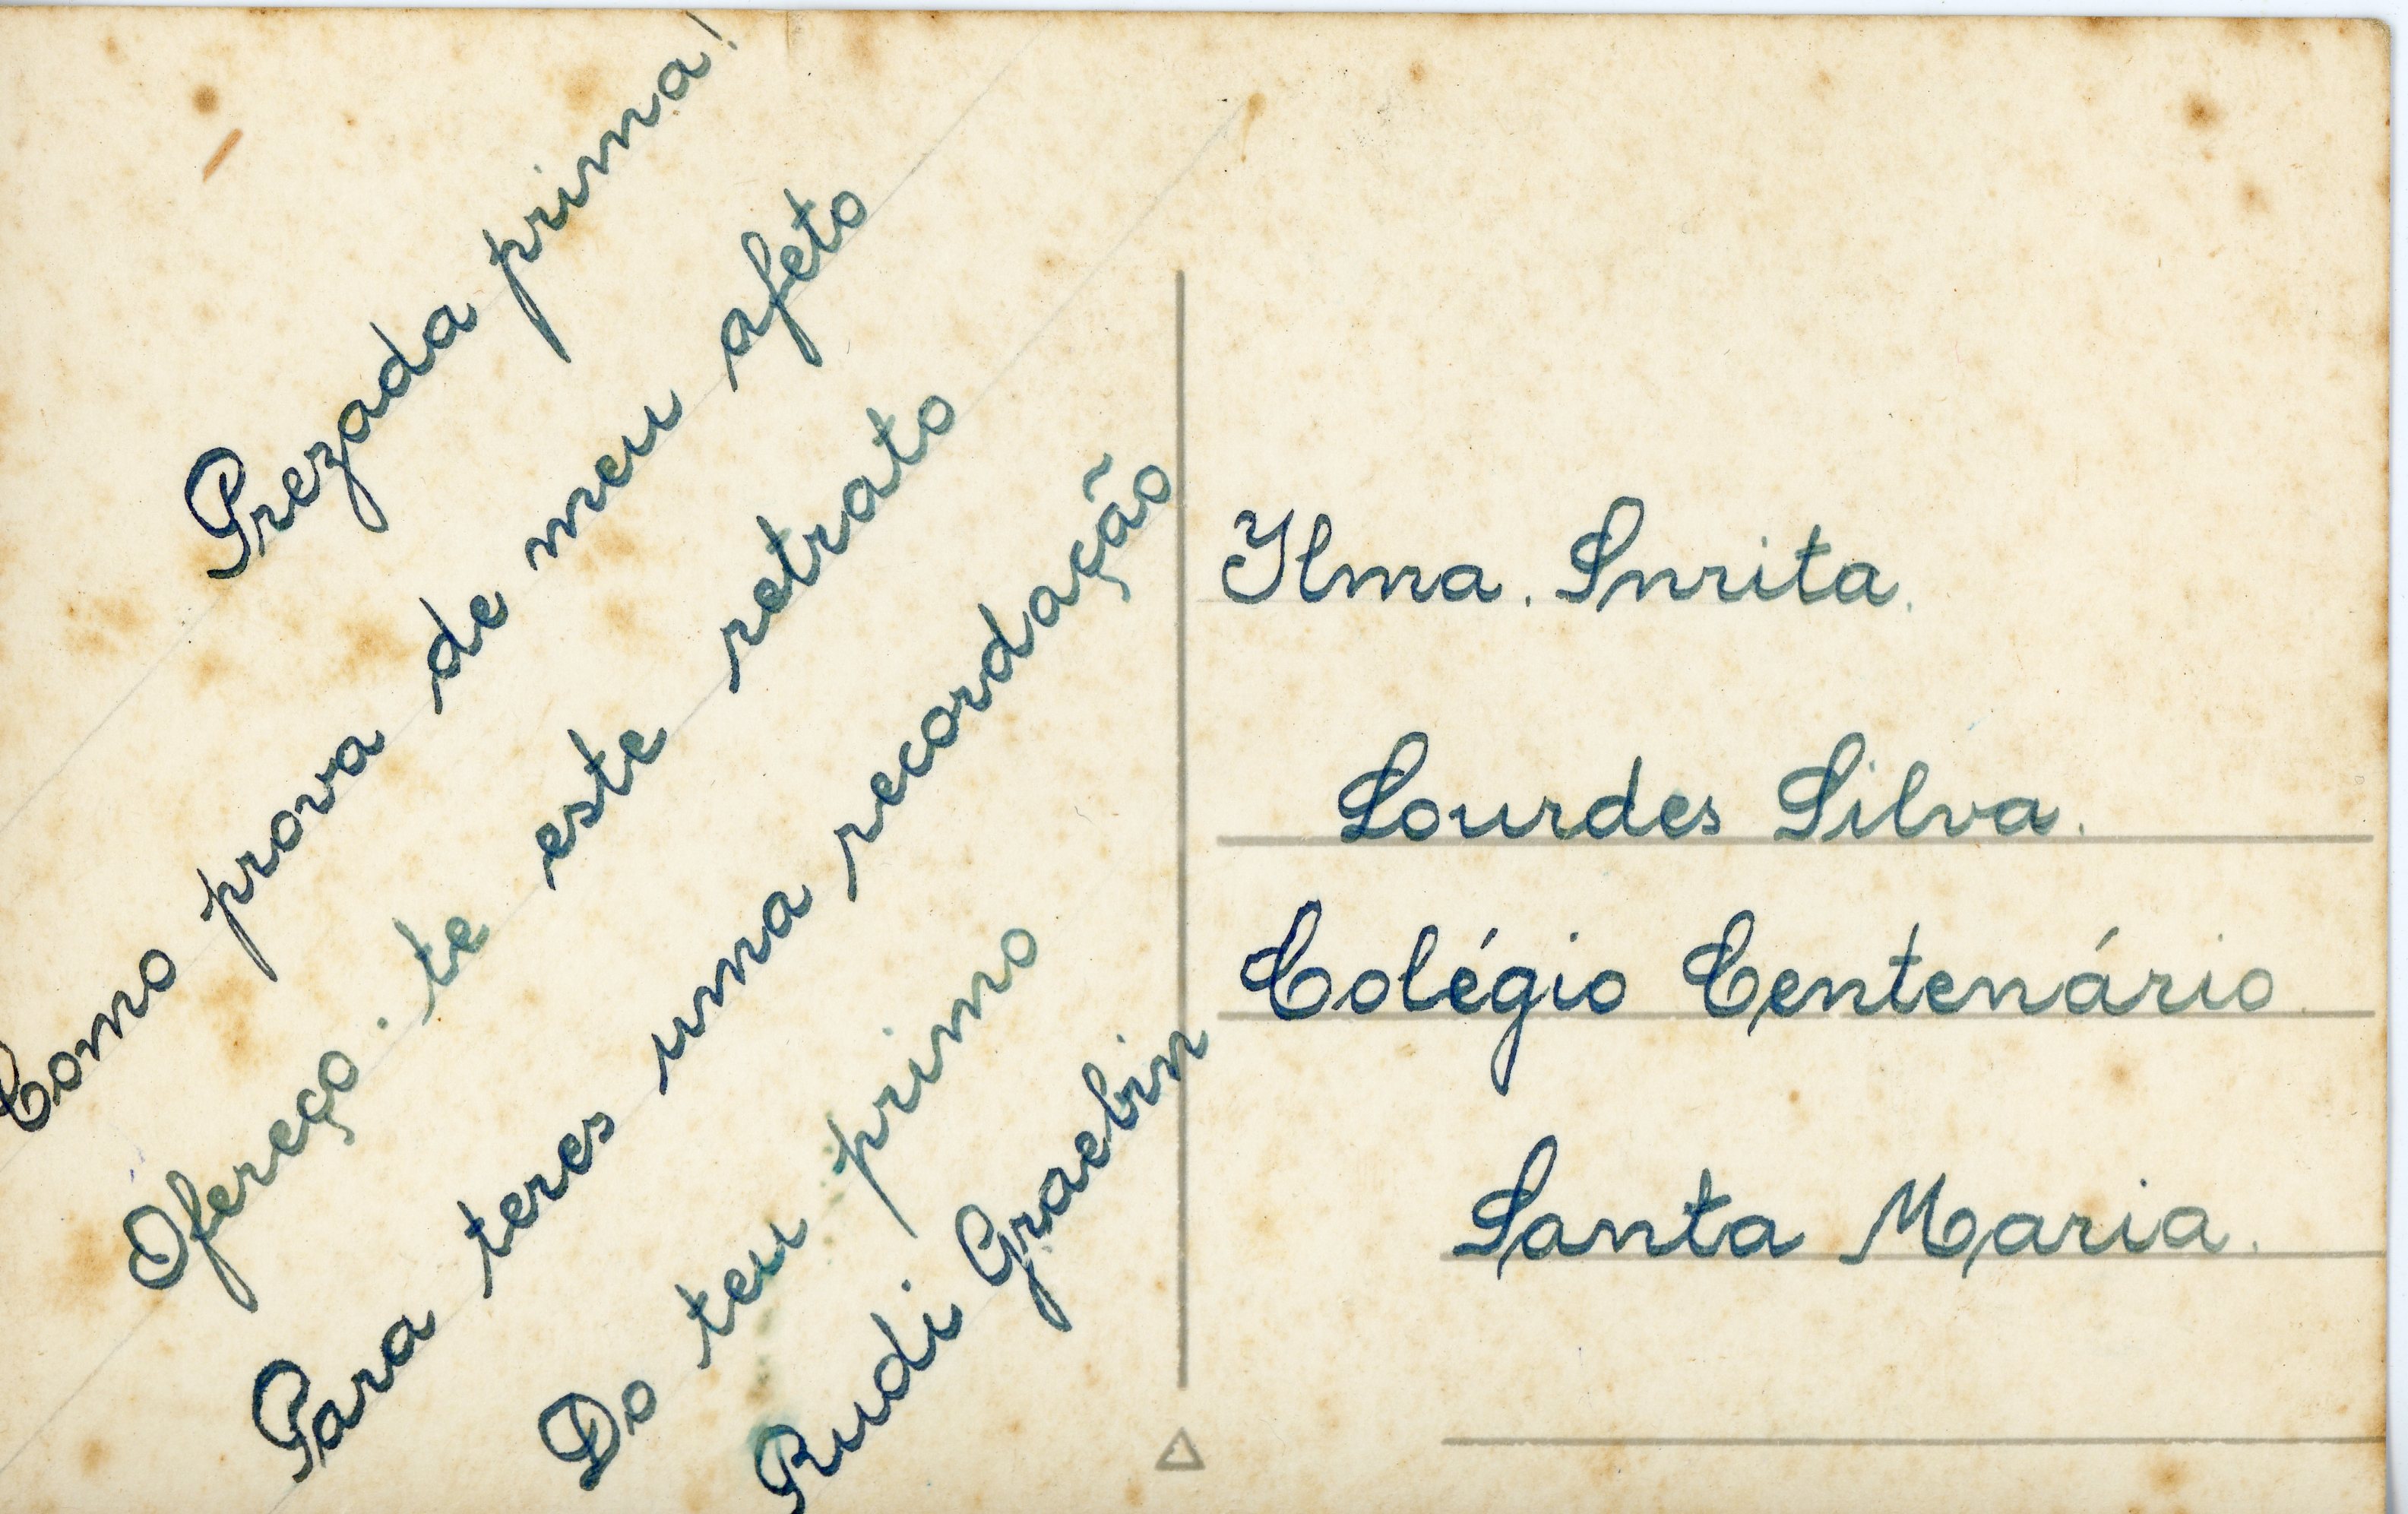 Prezada prima!
Como prova de meu afeto
Ofereço-te este retrato
Para teres uma recordação
Do teu primo
Rudi Graebin
Ilma. Snrita.
Lourdes Silva.
Colégio Centenário.
Santa Maria.